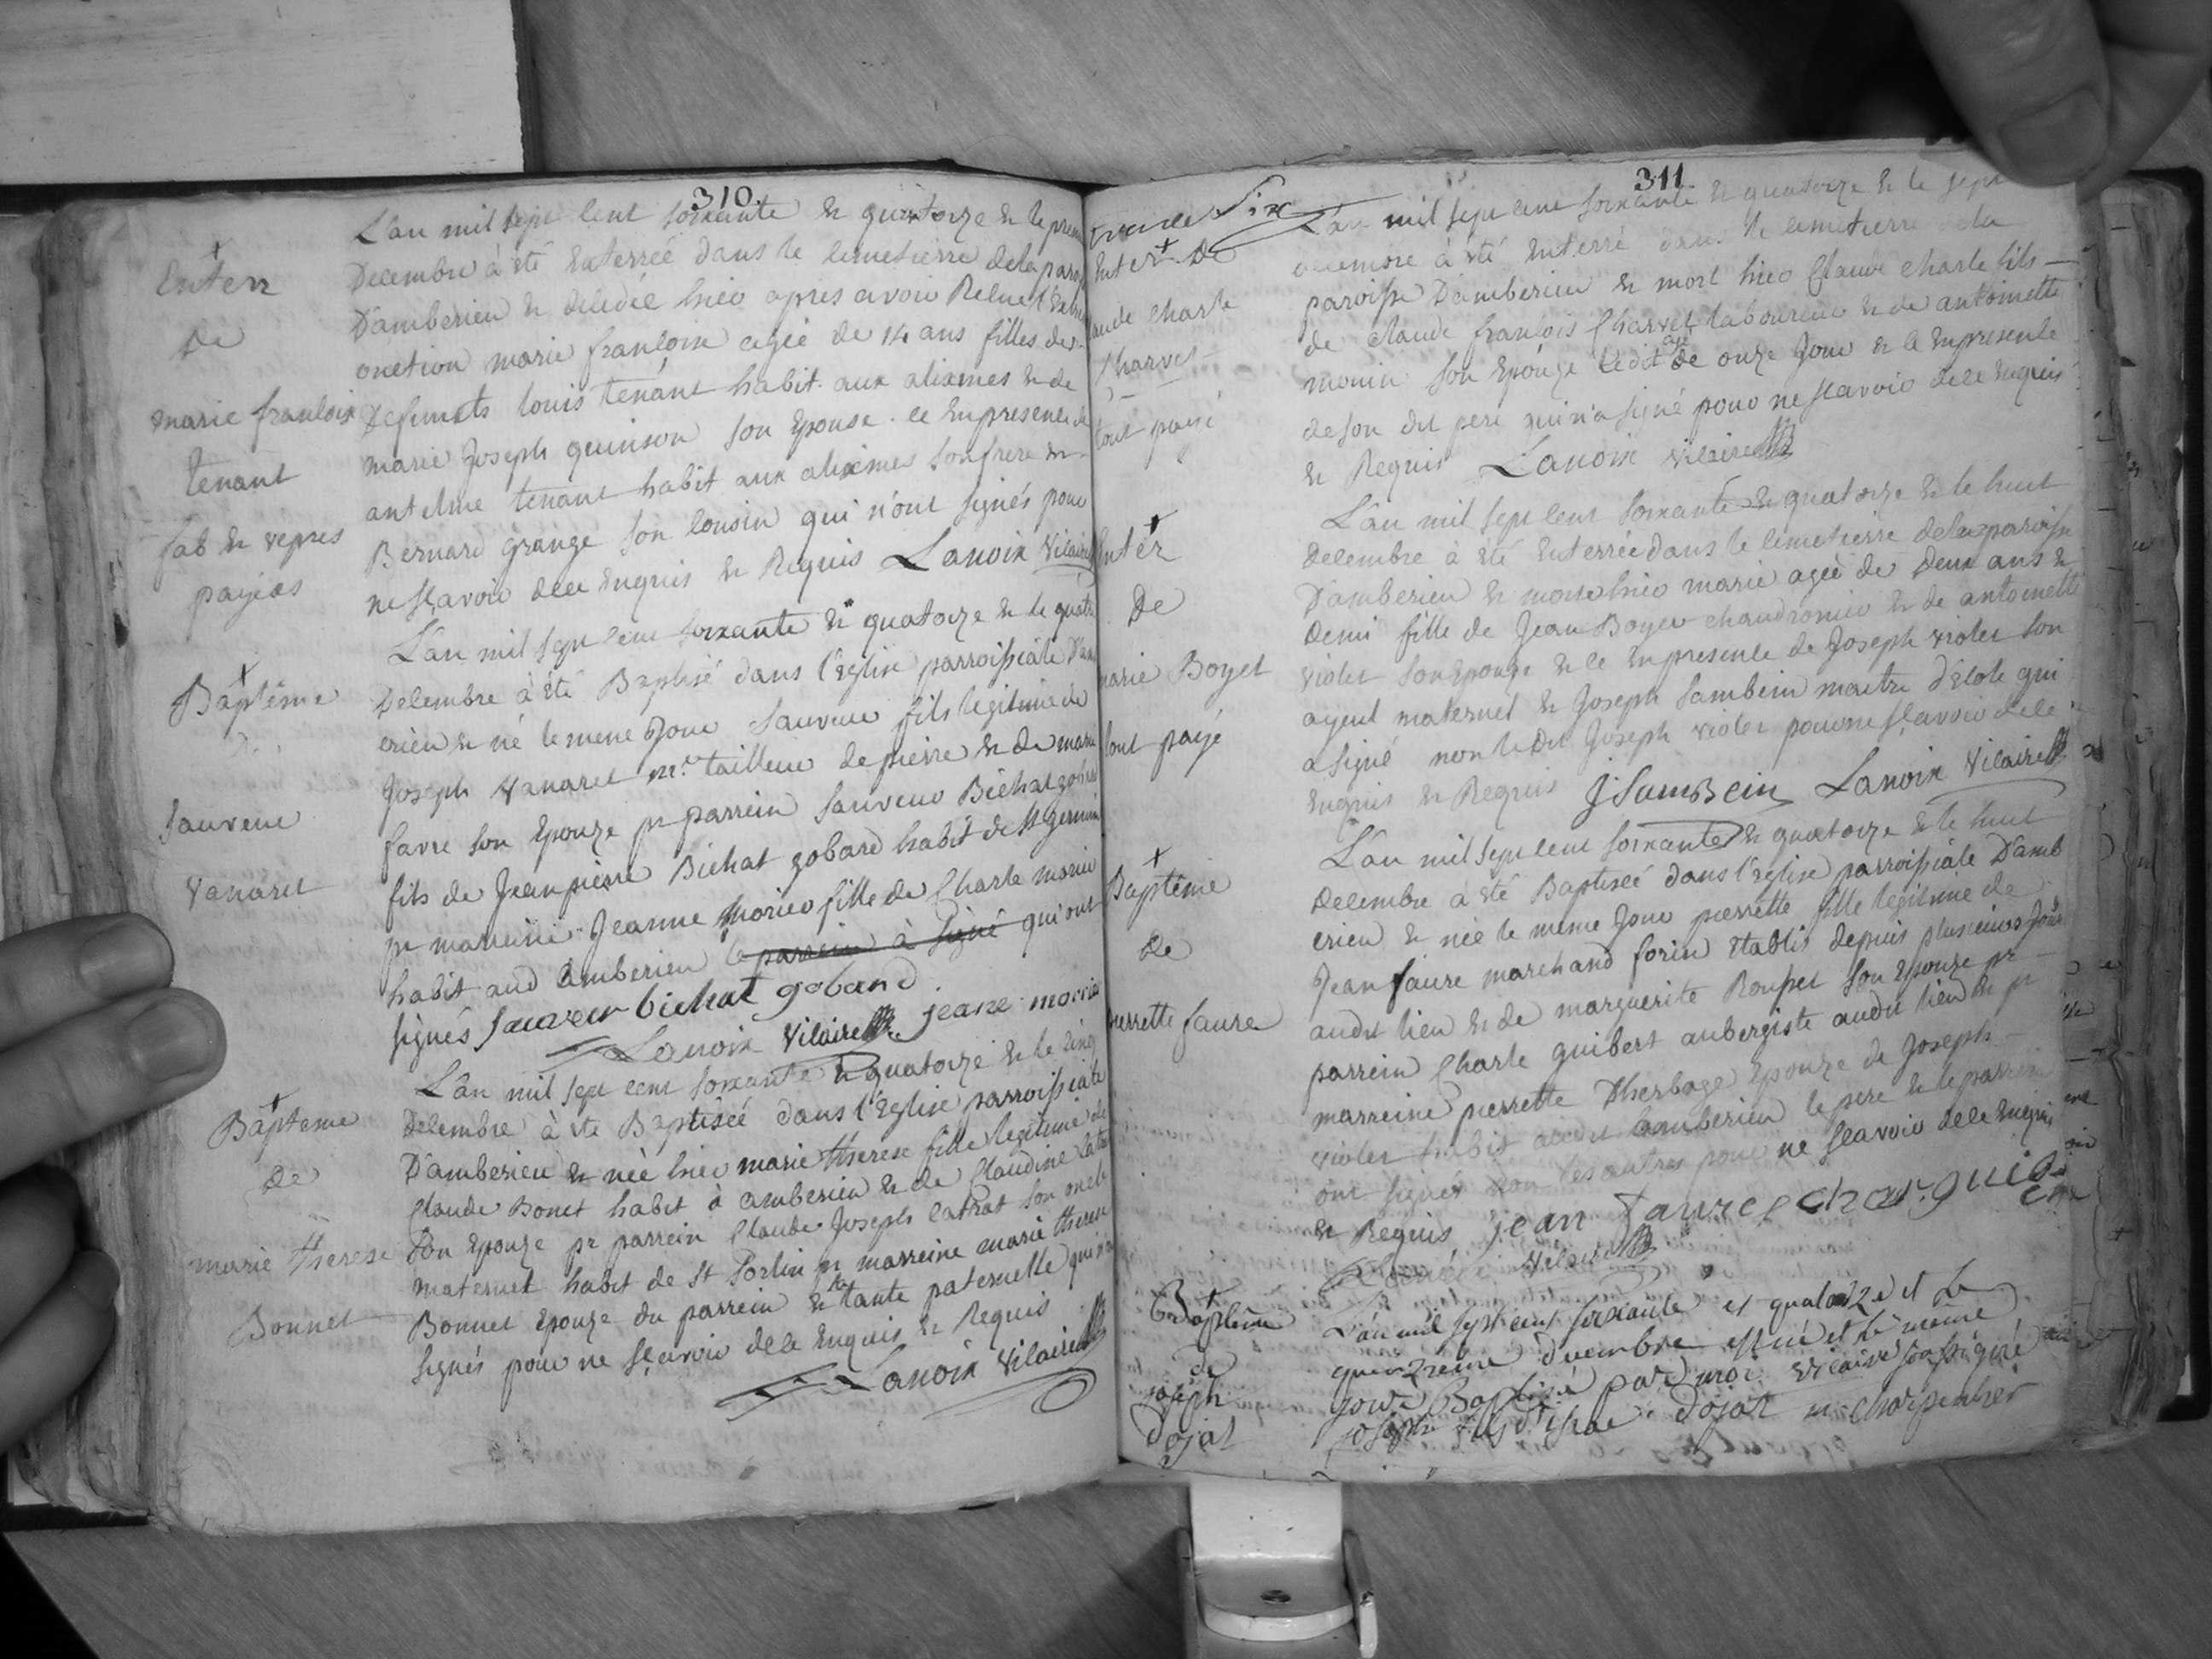 310.
Enterr
De
marie francoise
tenant
fab & vepres
payées
L'an mil sept cent soixante & quatorze & le premier
Decembre à été Enterreé dans le cimetierre dela paroisse
D'amberieu & decedée hier apres avoir Relue l'Extreme
onction marie francoise agée de 14 ans filles de
Defuncts louis tenant habit. aux alixmes & de
marie Joseph quinson son Epouse. ce En presence de
antelme tenant habit aux alixmes son frere &
Bernard grange son cousin qui n'ont signés pour
ne sçavoir dece Enquis & Requis Lanoix Vicaire
Baptême
De
Sauveur
vanaret
L'an mil sept cent soixante & quatorze & le quatre
Decembre à été Baptisé dans l'Eglise parroissiale D'amb
erieu & né le meme Jour Sauveur fils legitime de
Joseph vanaret me. tailleur de pierre & de marie
favre son Epouze pr parrein Sauveur Bichat gobard
fils de Jeanpierre Bichat gobard habit de st germain
pr marreine Jeanne morier fille de Charle morier
habit aud amberieu le parrein à signé qui ont
signés sauveur bichat goband
Lanoix Vicaire jeane morier
Bapteme
de
marie therese
Bonnet
L'an mil sept cent soixante & quatorze & le cinq
Decembre à été Baptiseé dans l'Eglise parroissiale
D'amberieu & née hier marie therese fille legitime de
Claude Bonet habit à amberieu & de Claudine
son Epouze pr parrein Claude Joseph son oncle
maternel habit de st Sorlin pr marreine marie therese
Bonnet Epouze du parrein & sa tante paternelle qui n'a
signés pour ne sçavoir dece Enquis & Requis
Lanoix Vicaire
311.
trente Six
Enterr. De
Claude Charle
Charvet
tout payé
L'an mil sept cent soixante & quatorze & le sept
decembre à été Enterré dans le cimetierre dela
paroisse D'amberieu & mort hier Claude charle fils
de claude francois Charvet laboureur & de antoinette
monin son Epouze ledit agé de onze Jour & le En presence
de son dit pere qui n'a signé pour ne scavoir dece Enquis
& Requis Lanoix vicaire
Enterr
De
marie Boyet
tout payé
L'an mil sept cent soixante & quatorze & le huit
Decembre à été Enterreé dans le cimetierre dela paroisse
D'amberieu & morte hier marie agée de Deux ans &
Demi fille de Jean Boyer chaudronier & de antoinette
violet son Epouze & ce En presence de Joseph violet son
ayeul maternel & Joseph Sambein maitre d'Ecole qui
a signé non le Dit Joseph violet pour ne sçavoir dece
Enquis & Requis J: SamBein Lanoix Vicaire
Baptême
De
pierrette faure
L'an mil sept cent soixante & quatorze & le huit
Decembre à été Baptiseé dans l'Eglise parroissiale D'amb
erieu & née le meme Jour pierrette fille legitime de
Jean faure marchand forin Etablis depuis plusieurs Jours
audit lieu & de marguerite Roupet son Epouze pr
parrein Charle guibert aubergiste audit lieu & pr
marreine pierrette Dherbage Epouze de Joseph
violet habit audit amberieu le pere & le parrein
ont signés non les autres pour ne scavoir dece Enquis
& Requis jean faure char. guibe
Lanoix vicaire
Baptême
de
joseph
Dojat
L'an mil sept cent soixante et quatorze et le
quinzieme decembre est né et le même
jour Baptisé par moi vicaire soussigné
joseph fils d'isaac Dojat me charpentier